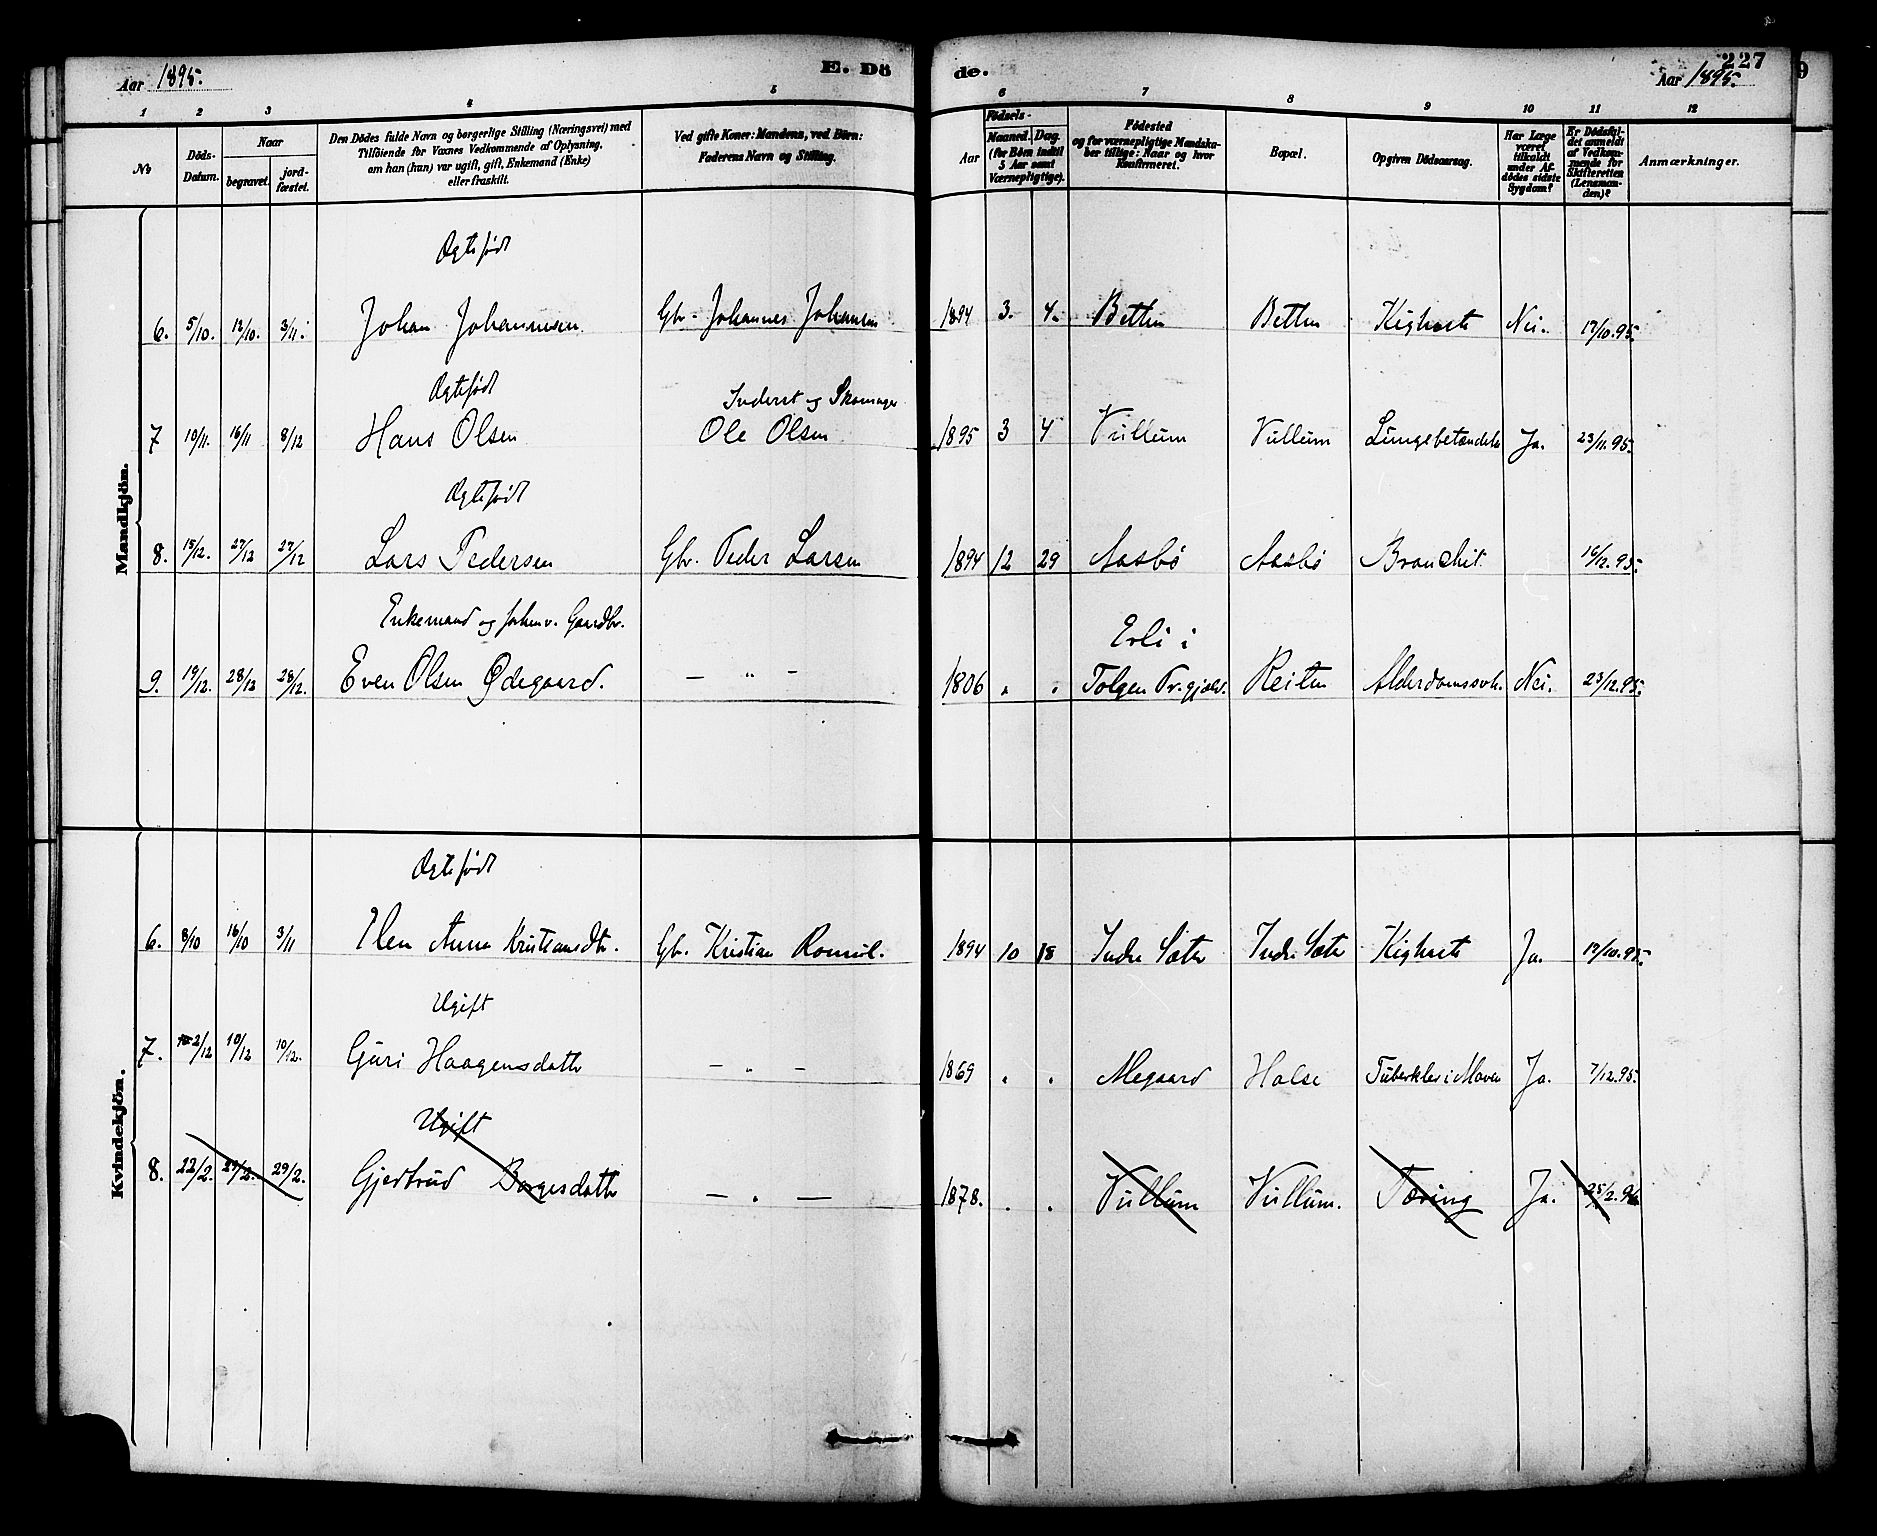 Aar 1895.
E. Dö
de.
227
Aar 1895.
9
1 2 3 4 5 6 7 8 9 10 11 12
No
Döds-
Datum.
Naar
begravet.
jord-
fæstet.
Den Dödes fulde Navn og borgerlige Stilling (Næringsvei) med
Tilföiende for Voxnes Vedkommende af Oplysning,
om han (hun) var ugift, gift, Enkemand (Enke)
eller fraskilt.
Ved gifte Koner: Mandens, ved Börn:
Faderens Navn og Stilling.
Födsels-
Aar
Maaned.
Dag.
(for Börn indtil
5 Aar samt
Værnepligtige).
Födested
og for værnepligtige Mandska-
ber tillige: Naar og hvor
Konfirmeret.
Bopæl.
Opgiven Dödsaarsag.
Har Læge
været
tilkaldt
under Af-
dödes sidste
Sygdom?
Er Dödsfal-
det anmeldt
af Vedkom-
mende for
Skifteretten
(Lensman-
den)?
Anmærkninger.
Mandkjön.
Ægtefødt
6. 5/10. 12/10. 3/11. Johan Johannesen Gbr. Johannes Johansen 1894 3. 4. Betten Betten Kighoste Nei. 17/10.95.
Ægtefødt
Inderst og Skomager
7 10/11. 16/11 8/12 Hans Olsen Ole Olsen 1895 3 4 Vullum Vullum Lungebetændelse Ja. 23/11.95.
Ægtefødt
8. 15/12. 27/12 27/12 Lars Pedersen Gbr. Peder Larsen 1894 12 29 Aasbø Aasbø Bronchit 16/12.95.
Enkemand og forhenv. Gaardbr.
Erli i
9. 19/12. 28/12 28/12. Even Olsen Ødegaard. — " — 1806 " " Tolgen Pr.gjeld. Reiten Alderdomssvk. Nei. 23/12.95.
Kvindekjön.
Ægtefødt
6. 8/10 16/10 3/11 Elen Anna Kristiansdtr. Gbr. Kristian Romul. 1894 10 18 Indre Sæter Indre Sæter Kighoste Ja. 19/10.95.
Ugift
7. 2/12 10/12 10/12. Guri Haagensdatter — " — 1869 " " Megaard Halse Tuberkler i Maven Ja. 7/12.95.
Ugift
8. 22/2. 29/2. 29/2. Gjertrud Borgesdatter — " — 1878. " " Vullum Vullum. Tæring Ja. 25/2.96